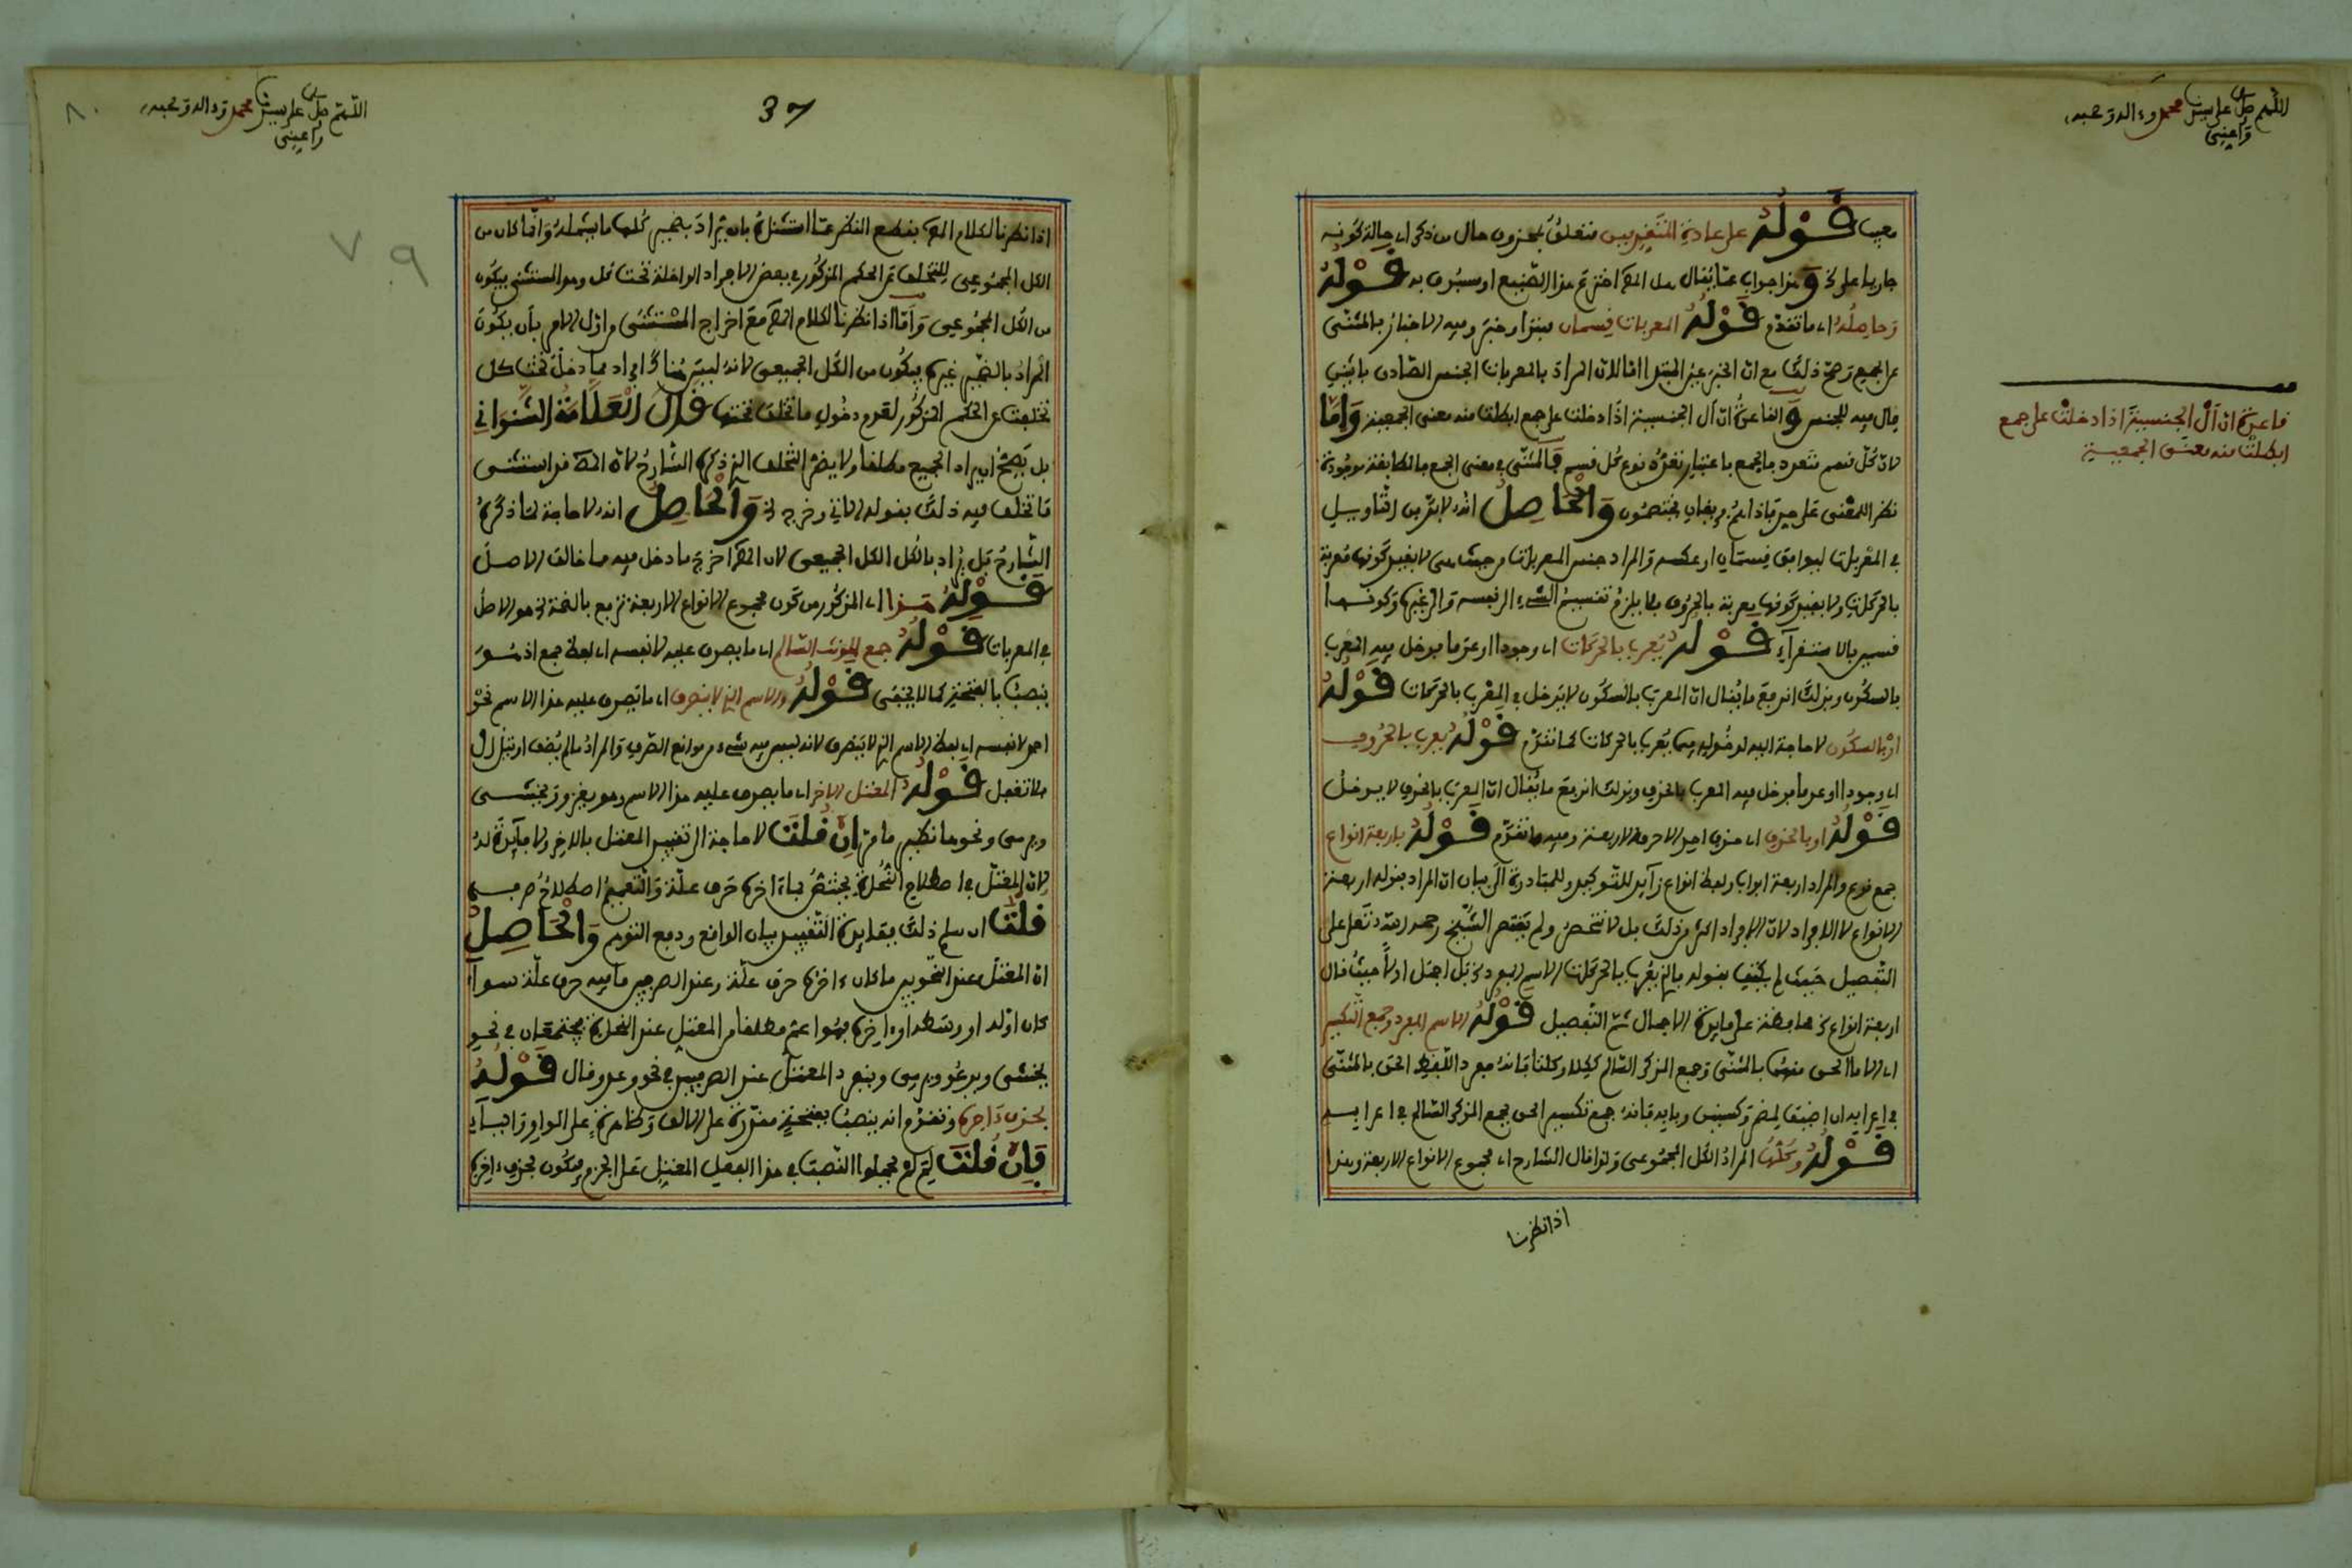 اللهم صل على سيدنا محمد وءاله وصحبه
وأعني
فيها قوله على عادة المتقدمين متعلق بمحذوف حال من ذكر اي حالة كونه
جاريا على الخ وهذا جواب عما يقال هل المص اخترع هذا الصنيع او سبق به قوله
وحاصله اي ما تقدم قوله المعربات قسمان مبتدا وخبر وفيه الاخبار بالمثنى
عن الجمع وصح ذلك مع ان الخبر عين المبتدا اما لان المراد بالمعربات الجنس الصادق باثنين
قال فيه للجنس والقاعدة ان أل الجنسية اذا دخلت على جمع ابطلت منه معنى الجمعية واما
لان كل قسم متعدد فالجمع باعتبار تعدد نوع كل قسم فالمثنى في معنى الجمع فالمطابقة موجودة
نظرا للمعنى على حد فإذا هم فريقان يختصمون والحاصل انه لا بد من التاويل
في المعربات ليوافق قسمان او عكسه والمراد جنس المعربات من حيث هي لا بقيد كونها معربة
بالحركات ولا بقيد كونها معربة بالحروف فلا يلزم تقسيم الشيء الى نفسه والى غيره وكونهما
قسمين بالاستقراء قوله يعرب بالحركات اي وجودا او عدما فيدخل فيه المعرب
بالسكون وبذلك اندفع ما يقال ان المعرب بالسكون لا يدخل في المعرب بالحركات قوله
او بالسكون لا حاجة اليه لدخوله فيما يعرب بالحركات كما تقدم قوله يعرب بالحروف
اي وجودا او عدما فيدخل فيه المعرب بالحذف وبذلك اندفع ما يقال ان المعرب بالحذف لا يدخل
قوله او بالحذف اي حذف احد الاحرف الاربعة وفيه ما تقدم قوله فاربعة انواع
جمع نوع والمراد اربعة ابواب ولفظ انواع زائد للتوكيد وللمبادرة الى بيان ان المراد بقوله اربعة
الانواع لا الافراد لان الافراد اكثر من ذلك بل لا تنحصر ولم يقتصر الشيخ رحمه الله تعالى على
التفصيل حيث لم يكتف بقوله فالذي يعرب بالحركات الاسم المفرد الخ بل اجمل اولا حيث قال
اربعة انواع الخ محافظة على فايدة الاجمال ثم التفصيل قوله الاسم المفرد وجمع التكسير
اي الا ما الحق منهما بالمثنى وجمع المذكر السالم ككلا وكلتا فانه مفرد اللفظ الحق بالمثنى
في اعرابه ان اضيف لمضمر وكسنين وبابه فانه جمع تكسير الحق بجمع المذكر السالم في اعرابه
قوله وكلها المراد الكل المجموعي ولذا قال الشارح اي مجموع الانواع الاربعة وهذا
اذا نظرنا
فاعدة ان أل الجنسية اذا دخلت على جمع
ابطلت منه معنى الجمعية
اللهم صل على سيدنا محمد وءاله وصحبه
وأعني
٨٠
37
٧٩
اذا نظرنا لكلام المص بقطع النظر عما استثناه بان يراد بضمير كلها ما يشمله وانما كان من
الكل المجموعي لتخلف الحكم المذكور في بعض الافراد الداخلة تحت كل وهو المستثنى فيكون
من الكل المجموعي واما اذا نظرنا لكلام المص مع اخراج المستثنى من اول الامر بأن يكون
المراد بالضمير غيره فيكون من الكل الجميعي لانه ليس هناك افراد مما دخل تحت كل
تخلفت عن الحكم المذكور لعدم دخول ما تخلف تحتها قال العلامة الشنواني
بل يصح ان يراد الجميع مطلقا ولا يضر التخلف الذي ذكره الشارح لان المص قد استثنى
ما تخلف فيه ذلك بقوله الاتي وخرج الخ والحاصل انه لا حاجة لما ذكره
الشارح بل يراد بالكل الكل الجميعي لان المص اخرج ما دخل فيه مما خالف الاصل
قوله هذا اي المذكور من كون مجموع الانواع الاربعة ترفع بالضمة الخ هو الاصل
في المعربات قوله جمع المونث السالم اي ما يصدق عليه لا نفسه اي لفظ جمع اذ هو
ينصب بالفتحة كما لا يخفى قوله والاسم الذي لا ينصرف اي ما يصدق عليه هذا الاسم نحو
احمد لا نفسه اي لفظ الاسم الذي لا ينصرف لانه ليس فيه شيء من موانع الصرف والمراد ما لم يضف او تتل ال
فلا تغفل قوله المعتل الاخر اي ما يصدق عليه هذا الاسم وهو يغزو ويخشى
ويرمي ونحوها نظير ما مر ان قلت لا حاجة الى تقييد المعتل بالاخر ولا فايدة له
لان المعتل في اصطلاح النحاة يختص بما ءاخره حرف علة والتعميم اصطلاح صرفي
قلت ان سلم ذلك ففايدة التقييد بيان الواقع ودفع التوهم والحاصل
ان المعتل عند النحويين ما كان ءاخره حرف علة وعند الصرفيين ما فيه حرف علة سواء
كان اوله او وسطه او ءاخره فهو اعم مطلقا من المعتل عند النحاة فيجتمعان في نحو
يخشى ويدعو ويرمي وينفرد المعتل عند الصرفيين في نحو وعد وقال قوله
بحذف ءاخره وتقدم انه ينصب بفتحة مقدرة على الالف وظاهرة على الواو والياء
فإن قلت لم لم يحملوا النصب في هذا الفعل المعتل على الجزم فيكون بحذف ءاخره